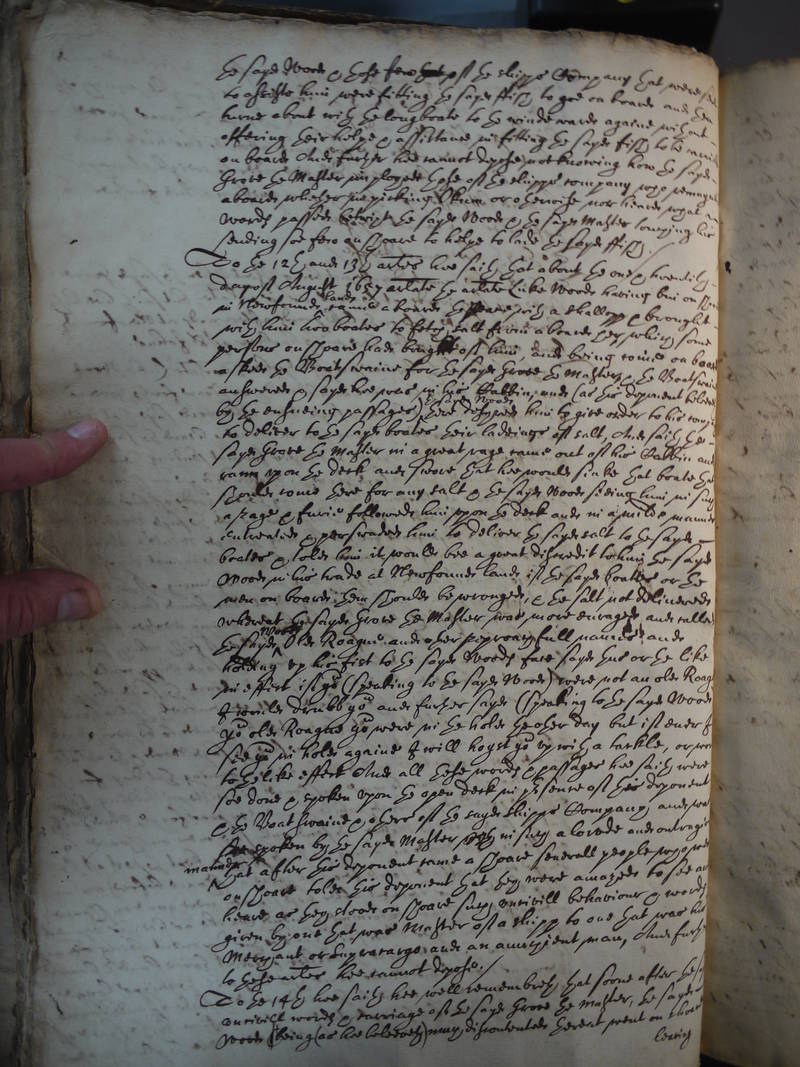 the sayd Wood & those few of the shipps Company that were sent
to assiste him were fitting the sayd ffish to goe on board and then
turne about with the longboate to the windewards againe without
offering their helpe & assistance in fitting the sayd fish to be carried
on board And further hee cannot depose not knowing how the sayd
Grove the Master imployed those of the shipps company who remayned
aboard, whether in picking Okum or otherwise nor heard what
words passed betwixt the sayd Wood & the sayd Master touching his
sending soe few on shoare to helpe to lade the sayd ffish /
To the 12th and 13th artles hee saith that about the one & twentith
day of August 1657 arlate the arlate Luke Wood having bin on shore
in Newfoundland came aboard the with a shallopp & brought
with him two boates to fetch salt from aboard which some
persons on shoare had bought of him, and being come on board
asked the Boatswaine for the sayd Grove the Master & the Boatswaine
answered & sayd hee was in his Cabbin, and (as his deponent beleeveth
by the ensueing passages) there desyred him to give order to his company
to deliver to the sayd boates their ladeing of salt, And saith the
sayd Grove the Master in a great rage came out of his Cabbin and
ran upon the deck and swore that hee would sinke that boate that
should come there for any salt & the sayd Wood seeing him in such
a rage & furie followed him upon the deck and in a milde manner
intreated & perswaded him to deliver the sayd salt to the sayd
boates & told him it would bee a great discredit to him the sayd
Wood in his trade at Newfound land if the sayd boates or the
men on board them should be wronged, & the salt not delivered
whereat the sayd Grove the Master was more enraged and called
the sayd Wood Old Roague and other reproachfull names and
holding up his fist to the sayd Woods face sayd thus or the like
in effect if yow (speaking to the sayd Wood) were not an old Roague
I would drubb yow and further sayd (speaking to the sayd Wood
yow old Roague yow were in the hold the other day but if ever I
see yow in hold againe I will hoyst yow up with a tackle, or words
to the like effect And all these words & passages hee saith were
soe done & spoken upon the open deck in presence of this deponent
& the Boatswaine & others of the sayd shipps Company, and
spoken by the sayd Master in such a lowde and outragious
manner that after this deponent came a shoare severall people who were
on shoare told this deponent that they were amazed to see and
heare as they stood on shoare such uncivill behaviour & words
given by one that was Master of a shipp to one that was his
Merchant or Supracargo and an antient man, And further
to these artles hee cannot depose. /
To the 14th hee saith hee well remembreth that soone after the sayd
uncivill words & carriage of the sayd Grove the Master, the sayd
Wood (being (as hee beleeveth) much discontented thereat went on shoare
leaving